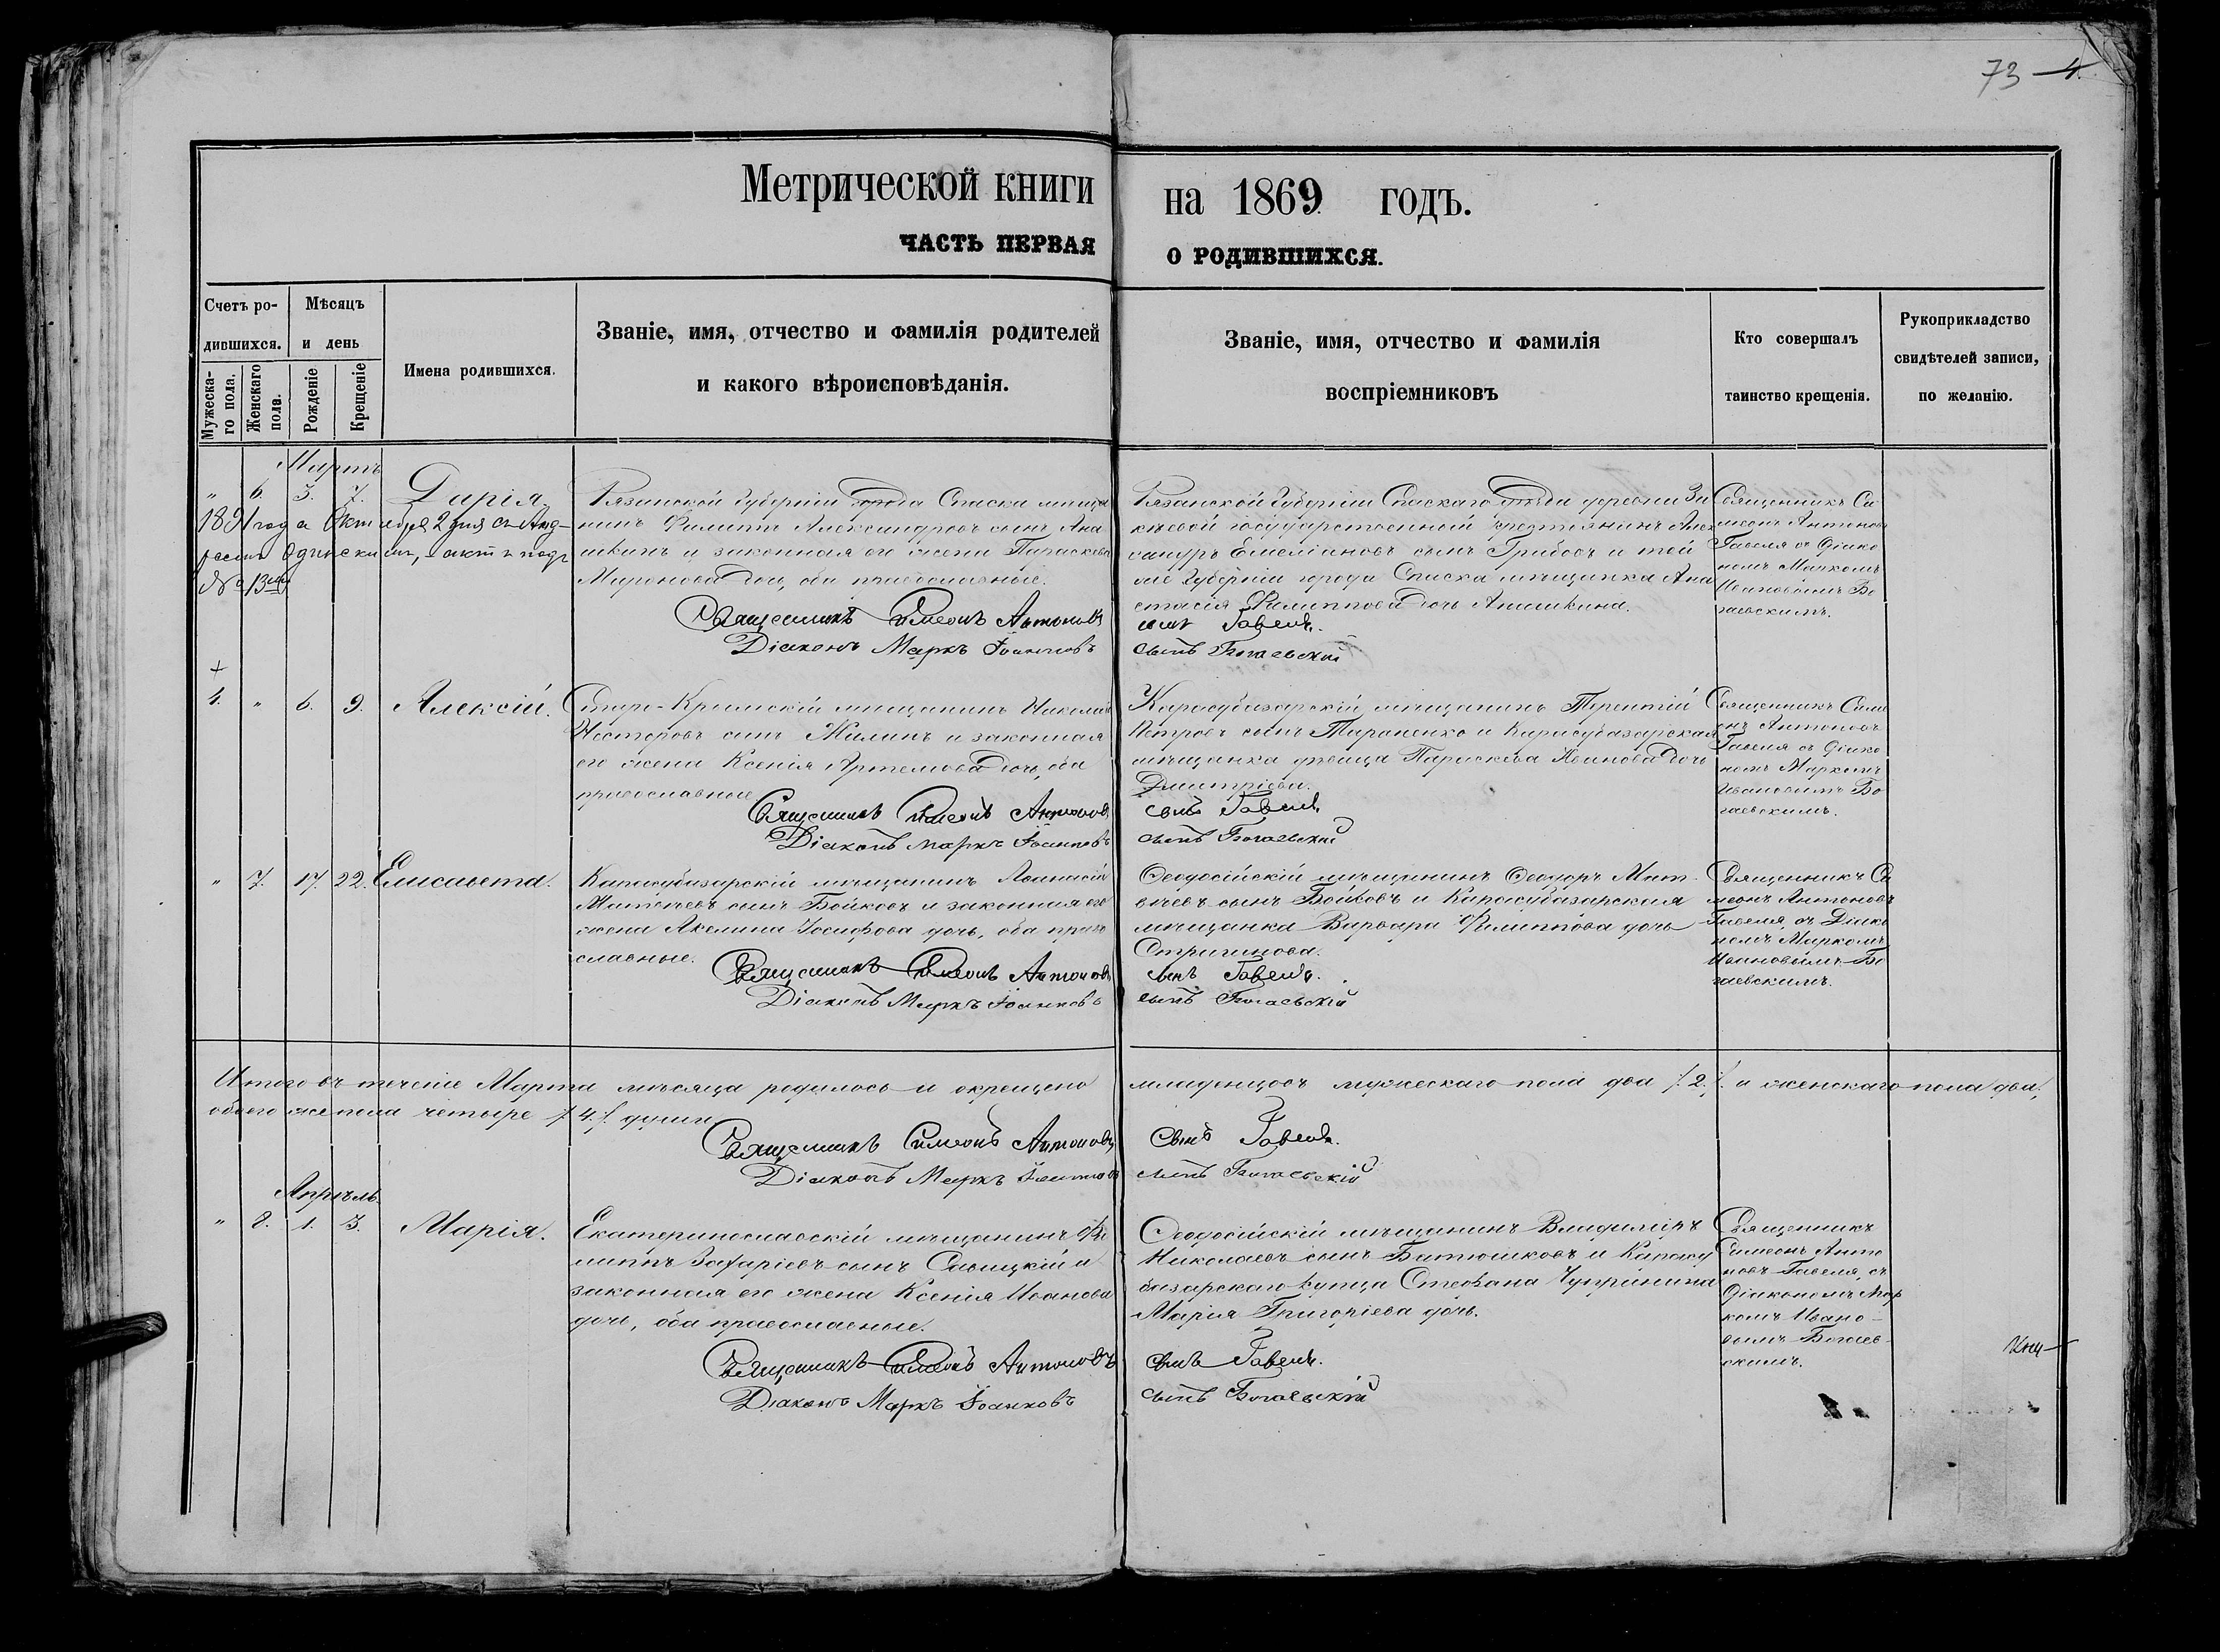 73 4.
Метрической книги на 1869 годъ.
ЧАСТЬ ПЕРВАЯ О РОДИВШИХСЯ.
Счетъ ро-
дившихся.
Мужеска-
го пола.
Женскаго
пола.
Мѣсяцъ
и день
Рожденіе
Крещеніе
Имена родившихся.
Званіе, имя, отчество и фамилія родителей
и какого вѣроисповѣданія.
Званіе, имя, отчество и фамилія
воспріемниковъ
Кто совершалъ
таинство крещенія.
Рукоприкладство
свидѣтелей записи,
по желанію.
Мартъ
" 6. 3. 7. Дарія
1891 года Октября 2 дня
№ 13
Рязанской Губерніи города Спаска мѣща
нинъ Филиппъ Александровъ сынъ Ана
шкинъ и законная его жена Параскева
Миронова дочь, оба православные.
Священникъ Симеонъ Антоновъ
Діаконъ Маркъ Іоанновъ
Рязанской Губерніи Спаскаго уѣзда деревни
государственный крестьянинъ Алек
сандръ Емеліановъ сынъ Грибовъ и той
же Губерніи города Спаска мѣщанка Ана
стасія Филиппова дочь Анашкина.
сынъ Гавеля.
сынъ Богаевскій
Священникъ Си
меонъ Антоновъ
Гавеля съ Діако
номъ Маркомъ
Ивановымъ Бо
гаевскимъ.
+
4. " 6. 9. Алексій.
Старо-Крымскій мѣщанинъ Николай
Несторовъ сынъ Жилинъ и законная
его жена Ксенія Артемова дочь, оба
православные
Священникъ Симеонъ Антоновъ
Діаконъ Маркъ Іоанновъ
Карасубазарскій мѣщанинъ Терентій
Петровъ сынъ Тараненко и Карасубазарская
мѣщанка дѣвица Параскева Иванова дочь
Дмитріева.
сынъ Гавеля
сынъ Богаевскій
Священникъ Симе
онъ Антоновъ
Гавеля съ Діако
номъ Маркомъ
Ивановымъ Бо
гаевскимъ.
" 7. 17. 22. Елисавета.
Карасубазарскій мѣщанинъ Аѳанасій
Матвѣевъ сынъ Бойковъ и законная его
жена Акелина Іосифова дочь, оба право
славные.
Священникъ Симеонъ Антоновъ
Діаконъ Маркъ Іоанновъ
Ѳеодосійскій мѣщанинъ Ѳеодоръ Мат-
вѣевъ сынъ Бойковъ и Карасубазарская
мѣщанка Варвара Филиппова дочь
сынъ Гавеля.
сынъ Богаевскій
Священникъ Си
меонъ Антоновъ
Гавеля, съ Діако
номъ Маркомъ
Ивановымъ Бо
гаевскимъ.
Итого въ теченіе Марта мѣсяца родилось и окрещено младенцовъ мужескаго пола два /.2./. и женскаго пола два,
обоего же пола четыре /.4./. души
Священникъ Симеонъ Антоновъ сынъ Гавеля.
Діаконъ Маркъ Іоанновъ сынъ Богаевскій
Апрѣль.
" 8. 1. 3. Марія.
Екатеринославскій мѣщанинъ Фи
липпъ Захаріевъ сынъ Савицкій и
законная его жена Ксенія Иванова
дочь, оба православные.
Священникъ Симеонъ Антоновъ
Діаконъ Маркъ Іоанновъ
Ѳеодосійскій мѣщанинъ Владиміръ
Николаевъ сынъ Батюшковъ и Карасу
базарскаго купца Стефана Чупринина
Марія Григоріева дочь.
сынъ Гавеля.
сынъ Богаевскій
Священникъ
Симеонъ Анто
новъ Гавеля, съ
Діакономъ Мар
комъ Ивано-
вымъ Богаев-
скимъ.